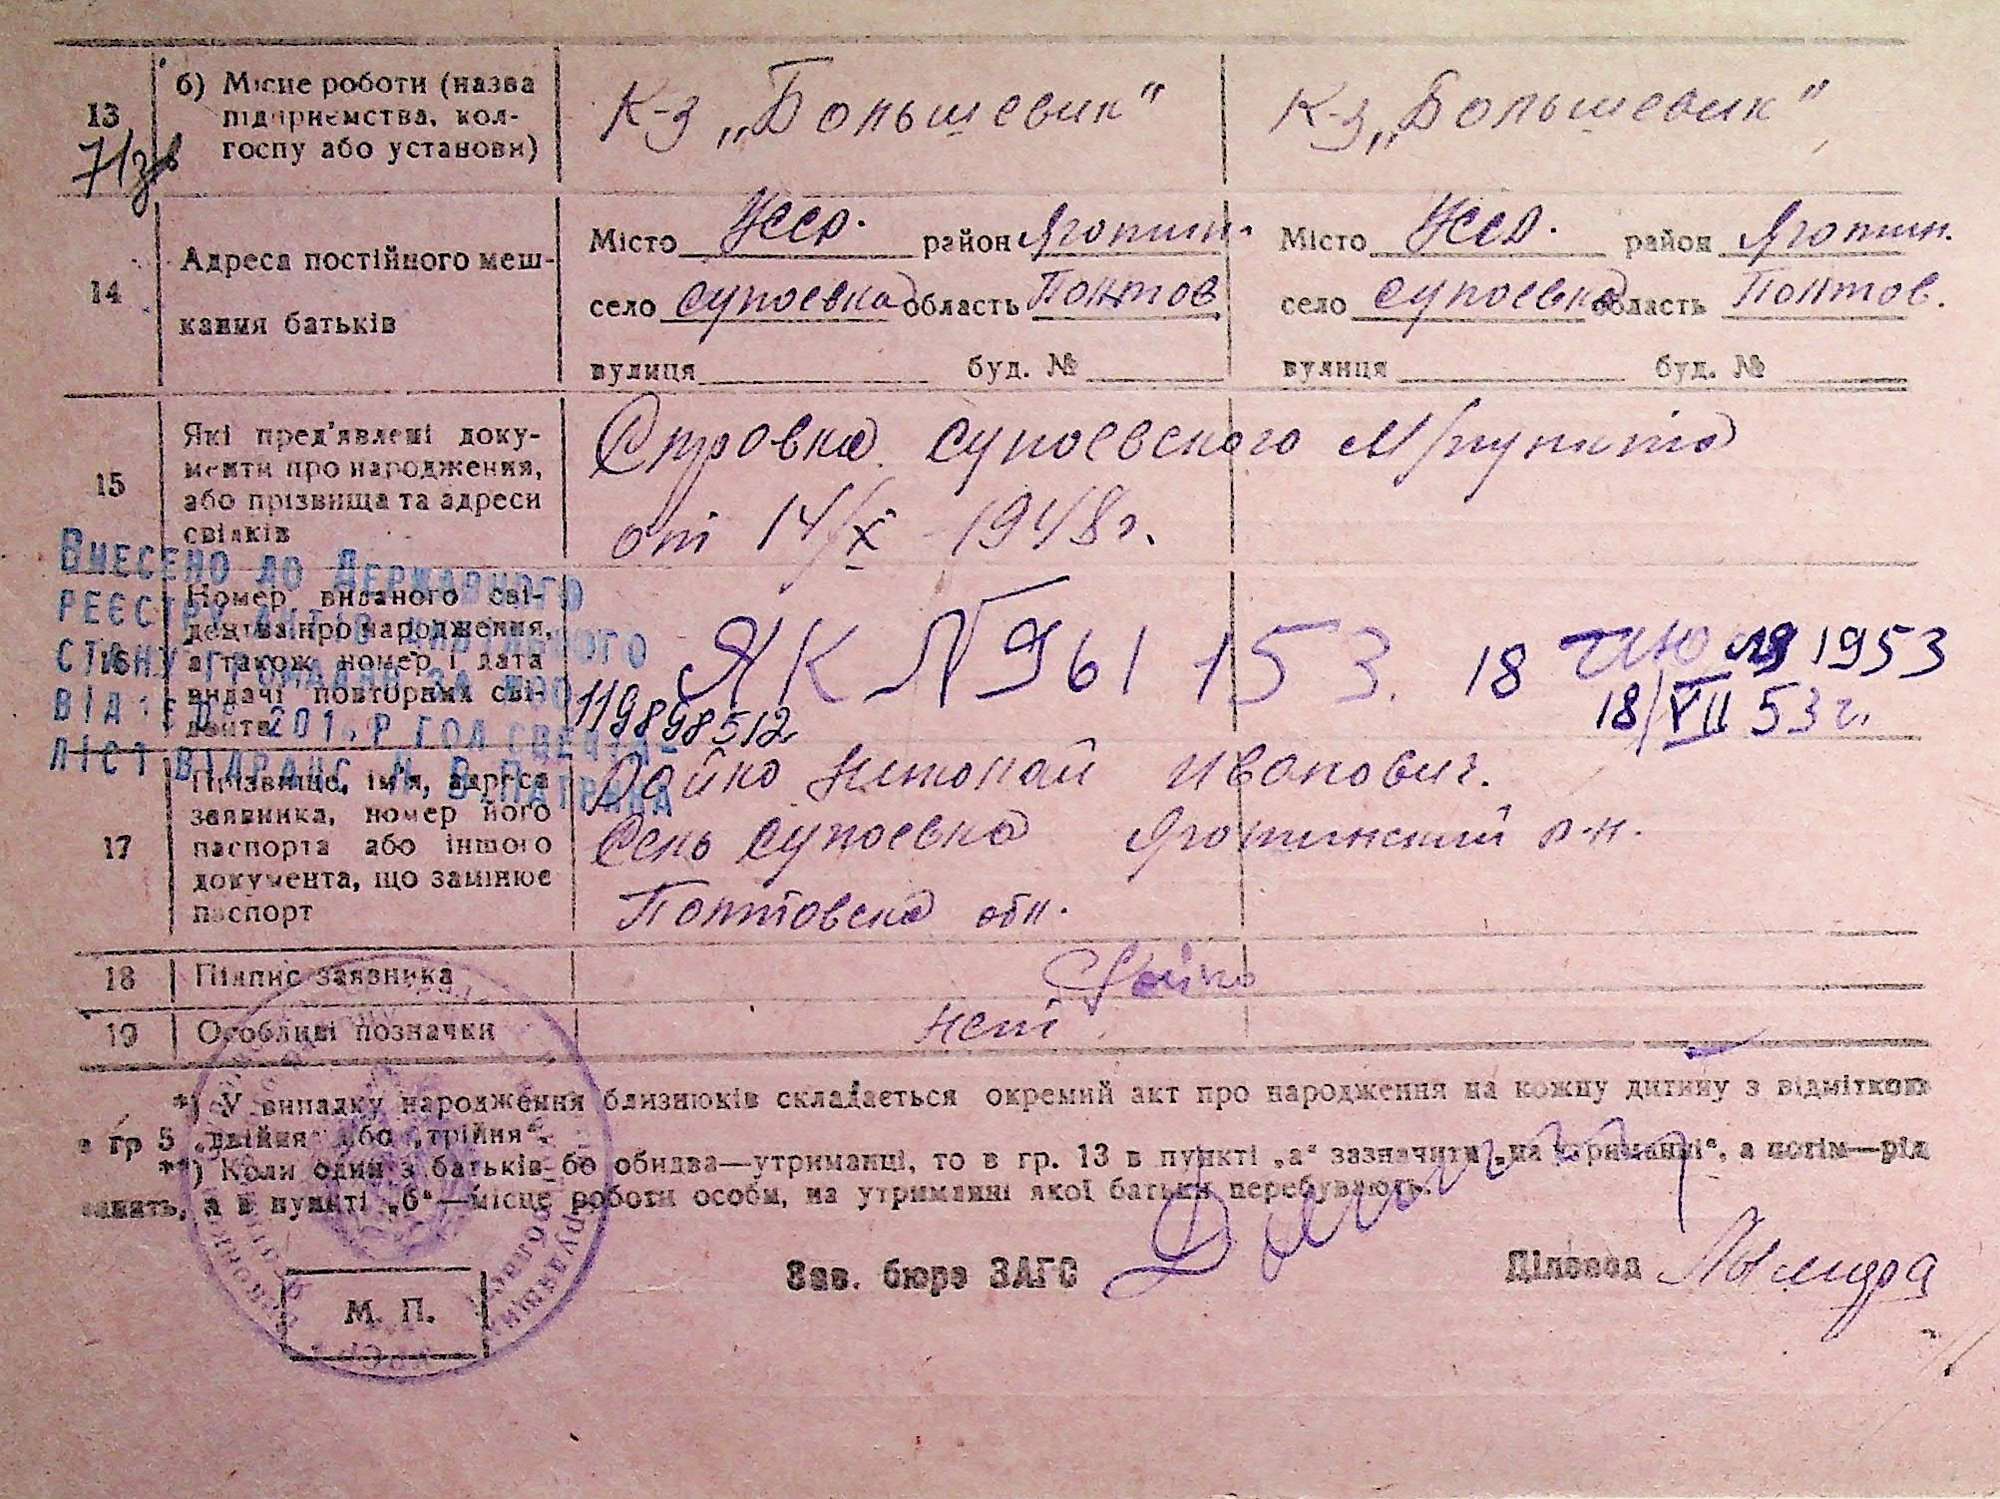 13
71зв
б) Місце роботи (назва
підприємства, кол-
госпу або установи)
К-з „Большевик"
К-з „Большевик"
14
Адреса постійного меш-
кання батьків
Місто УССР. район Яготин.
село Супоевка область Полтов
вулиця буд. №
Місто УССР. район Яготин.
село Супоевка область Полтов.
вулиця буд. №
15
Які пред'явлені доку-
менти про народження,
або прізвища та адреси
свідків
Справка Супоевского М/пункта
от 14/X 1948 г.
16
Номер виданого сві-
доцтва про народження,
а також номер і дата
видачі повторних сві-
доцтв
ЯК № 961153. 18 июля 1953
18/VII 53 г.
119898512
Внесено до Державного
реєстру актів цивільного
стану громадян за №
від 201 р
17
Прізвище, ім'я, адреса
заявника, номер його
паспорта або іншого
документа, що замінює
паспорт
Николай Иванович.
Село Супоевка Яготинский р-н.
Полтовска обл.
18
Підпис заявника
19
Особливі позначки
нет
*) У випадку народження близнюків складається окремий акт про народження на кожну дитину з відміткою
в гр 5 „двійня" або „трійня".
**) Коли один з батьків бо обидва—утриманці, то в гр. 13 в пункті „а" зазначити „на утриманні", а потім—рід
занять, а в пункті „б"—місце роботи особи, на утриманні якої батьки перебувають.
Зав. бюро ЗАГС
Діловод
М. П.